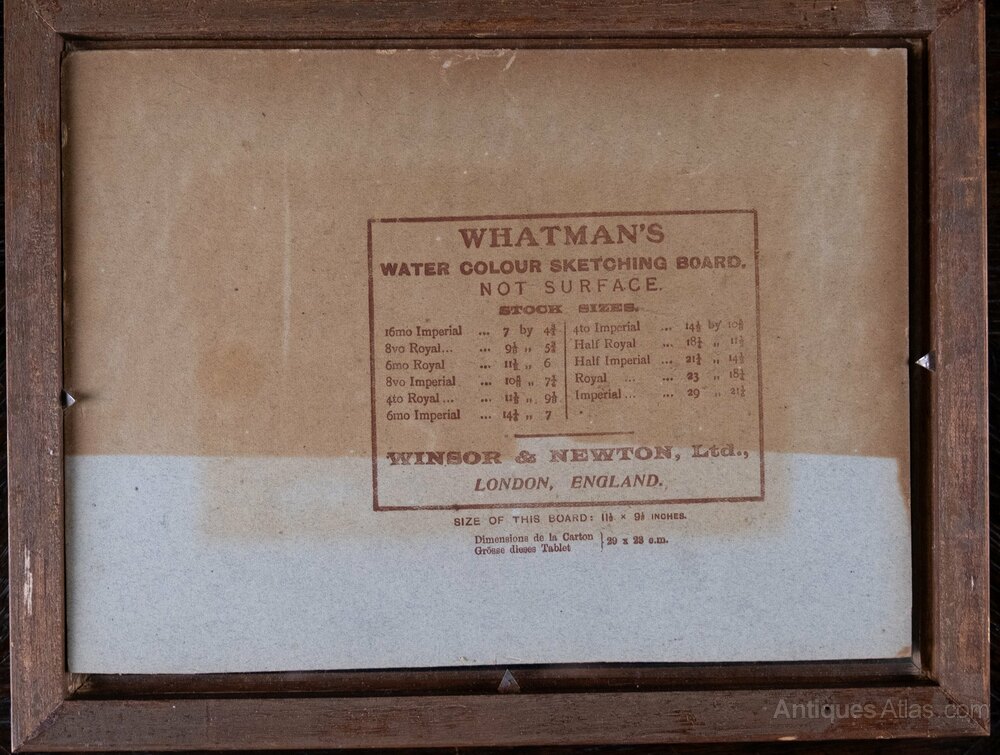 WHATMAN'S
WATER COLOUR SKETCHING BOARD.
NOT SURFACE.
STOCK SIZES.
16mo Imperial ... 7 by 4¾
8vo Royal... ... 9½ „ 5¾
6mo Royal ... 11½ „ 6
8vo Imperial ... 10⅝ „ 7¼
4to Royal ... ... 11½ „ 9⅛
6mo Imperial ... 14¼ „ 7
4to Imperial ... 14½ by 10⅝
Half Royal ... 18¼ „ 11½
Half Imperial ... 21¼ „ 14½
Royal ... ... 23 „ 18½
Imperial ... ... 29 „ 21½
WINSOR & NEWTON, Ltd.,
LONDON, ENGLAND.
SIZE OF THIS BOARD: 11½ × 9⅛ INCHES.
Dimensions de la Carton
Grösse dieses Tablet
29 x 23 c.m.
AntiquesAtlas.com